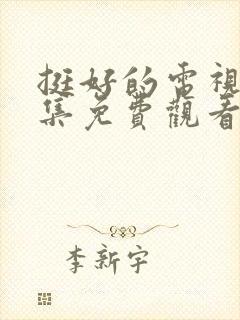 挺好的電視
集免費觀看
李新宇